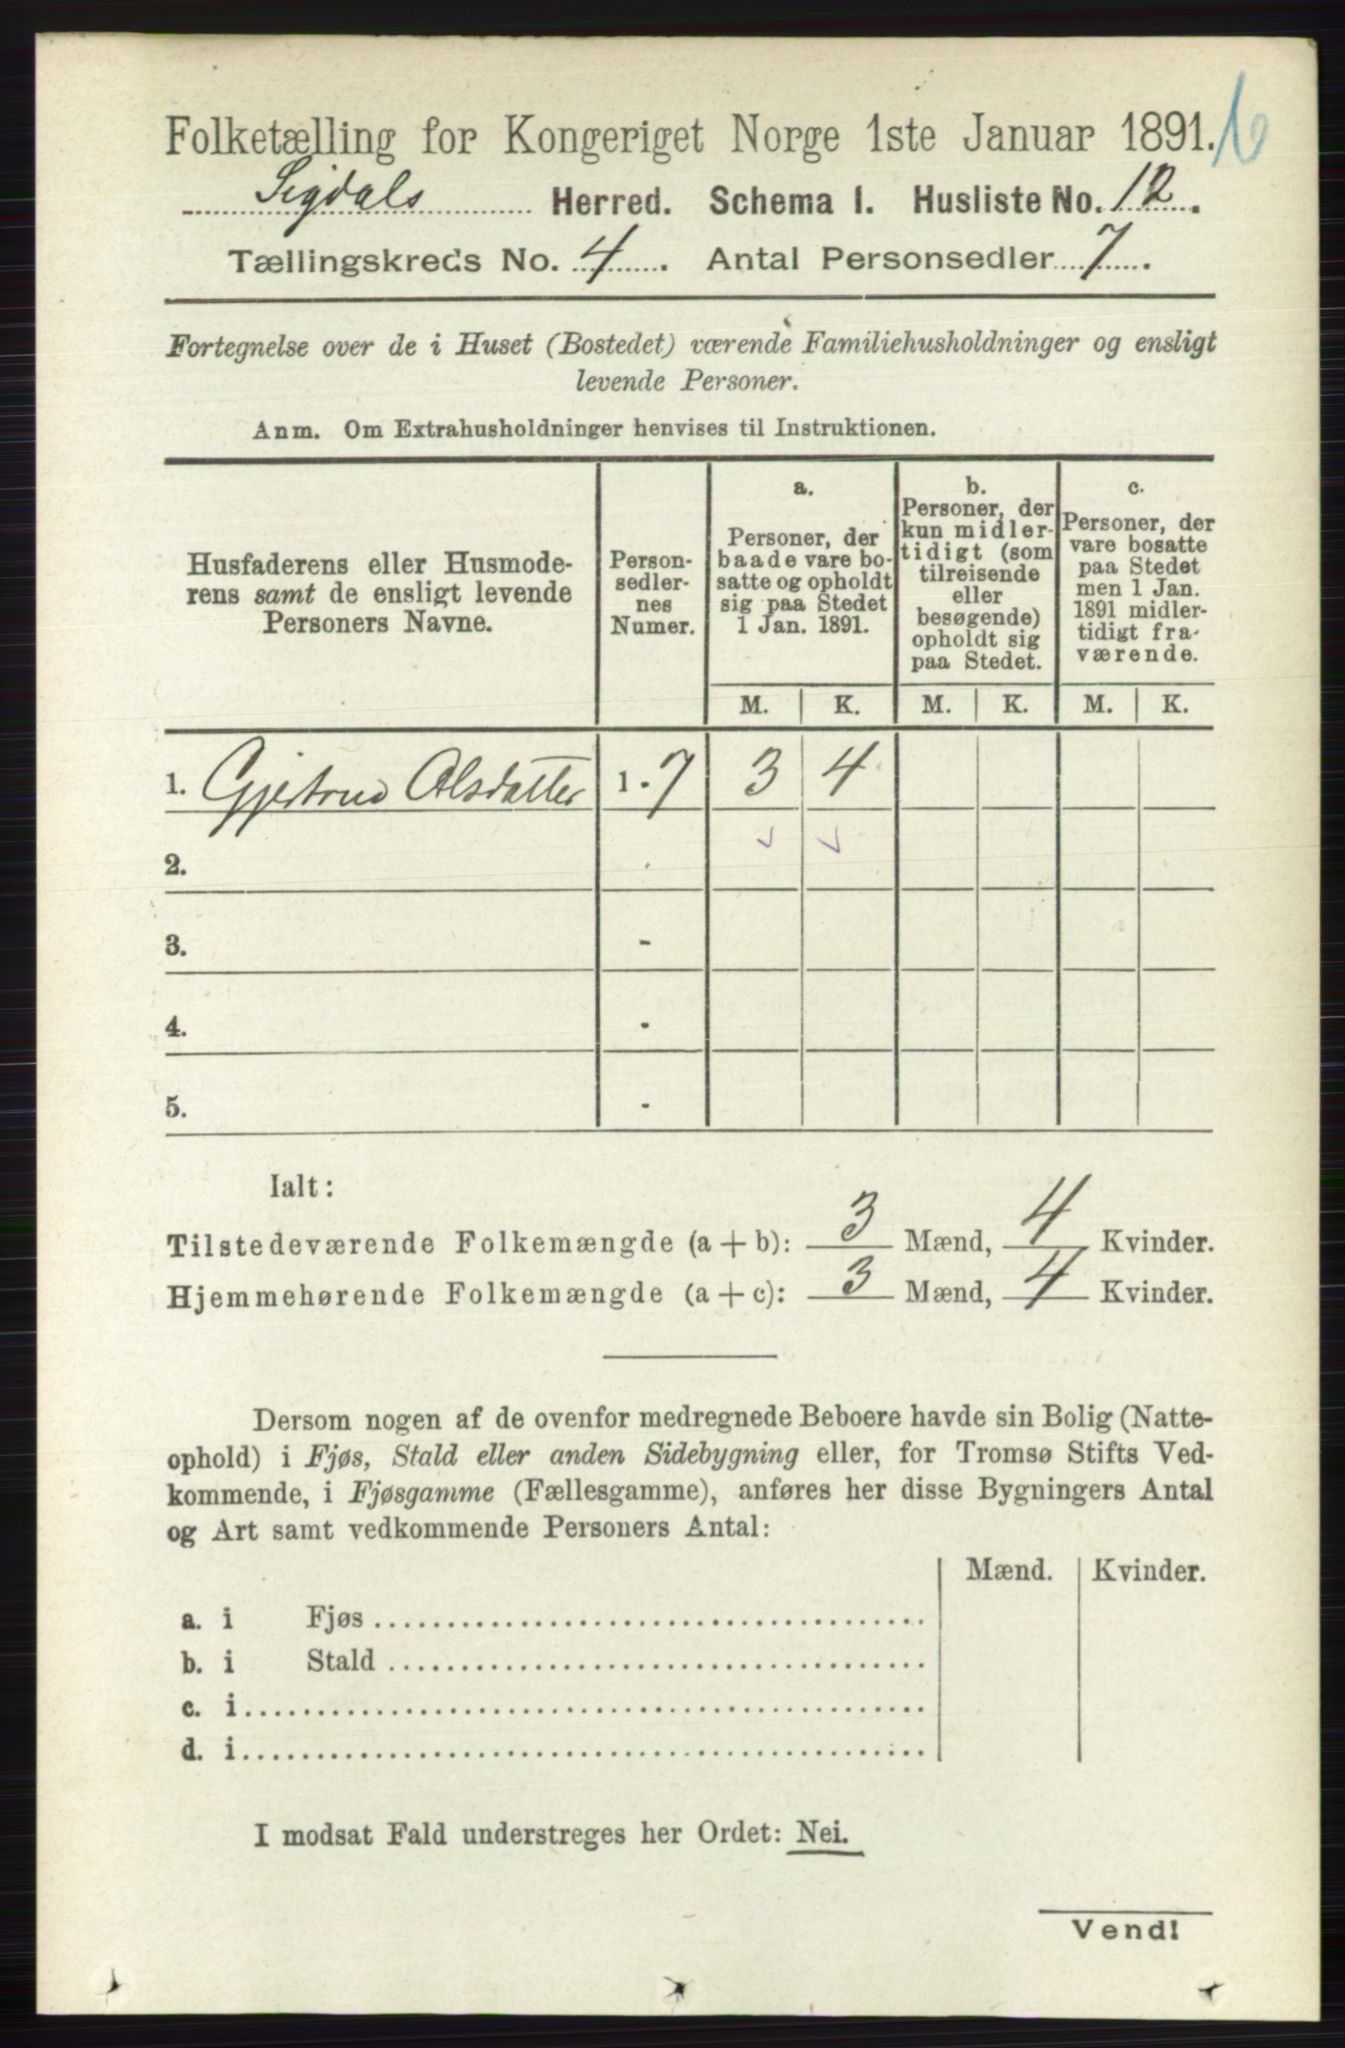 Folketælling for Kongeriget Norge 1ste Januar 1891. 6
Sigdals Herred. Schema I. Husliste No. 12.
Tællingskreds No. 4. Antal Personsedler 7.
Fortegnelse over de i Huset (Bostedet) værende Familiehusholdninger og ensligt
levende Personer.
Anm. Om Extrahusholdninger henvises til Instruktionen.
Husfaderens eller Husmode-
rens samt de ensligt levende
Personers Navne.
Person-
sedler-
nes
Numer.
a.
Personer, der
baade vare bo-
satte og opholdt
sig paa Stedet
1 Jan. 1891.
b.
Personer, der
kun midler-
tidigt (som
tilreisende
eller
besøgende)
opholdt sig
paa Stedet.
c.
Personer, der
vare bosatte
paa Stedet
men 1 Jan.
1891 midler-
tidigt fra-
værende.
M. K. M. K. M. K.
1. Gjertrud Olsdatter 1 - 7 3 4
2. -
3. -
4. -
5. -
Ialt:
Tilstedeværende Folkemængde (a + b): 3 Mænd, 4 Kvinder.
Hjemmehørende Folkemængde (a + c): 3 Mænd, 4 Kvinder.
Dersom nogen af de ovenfor medregnede Beboere havde sin Bolig (Natte-
ophold) i Fjøs, Stald eller anden Sidebygning eller, for Tromsø Stifts Ved-
kommende, i Fjøsgamme (Fællesgamme), anføres her disse Bygningers Antal
og Art samt vedkommende Personers Antal:
Mænd. Kvinder.
a. i Fjøs
b. i Stald
c. i
d. i
I modsat Fald understreges her Ordet: Nei.
Vend!